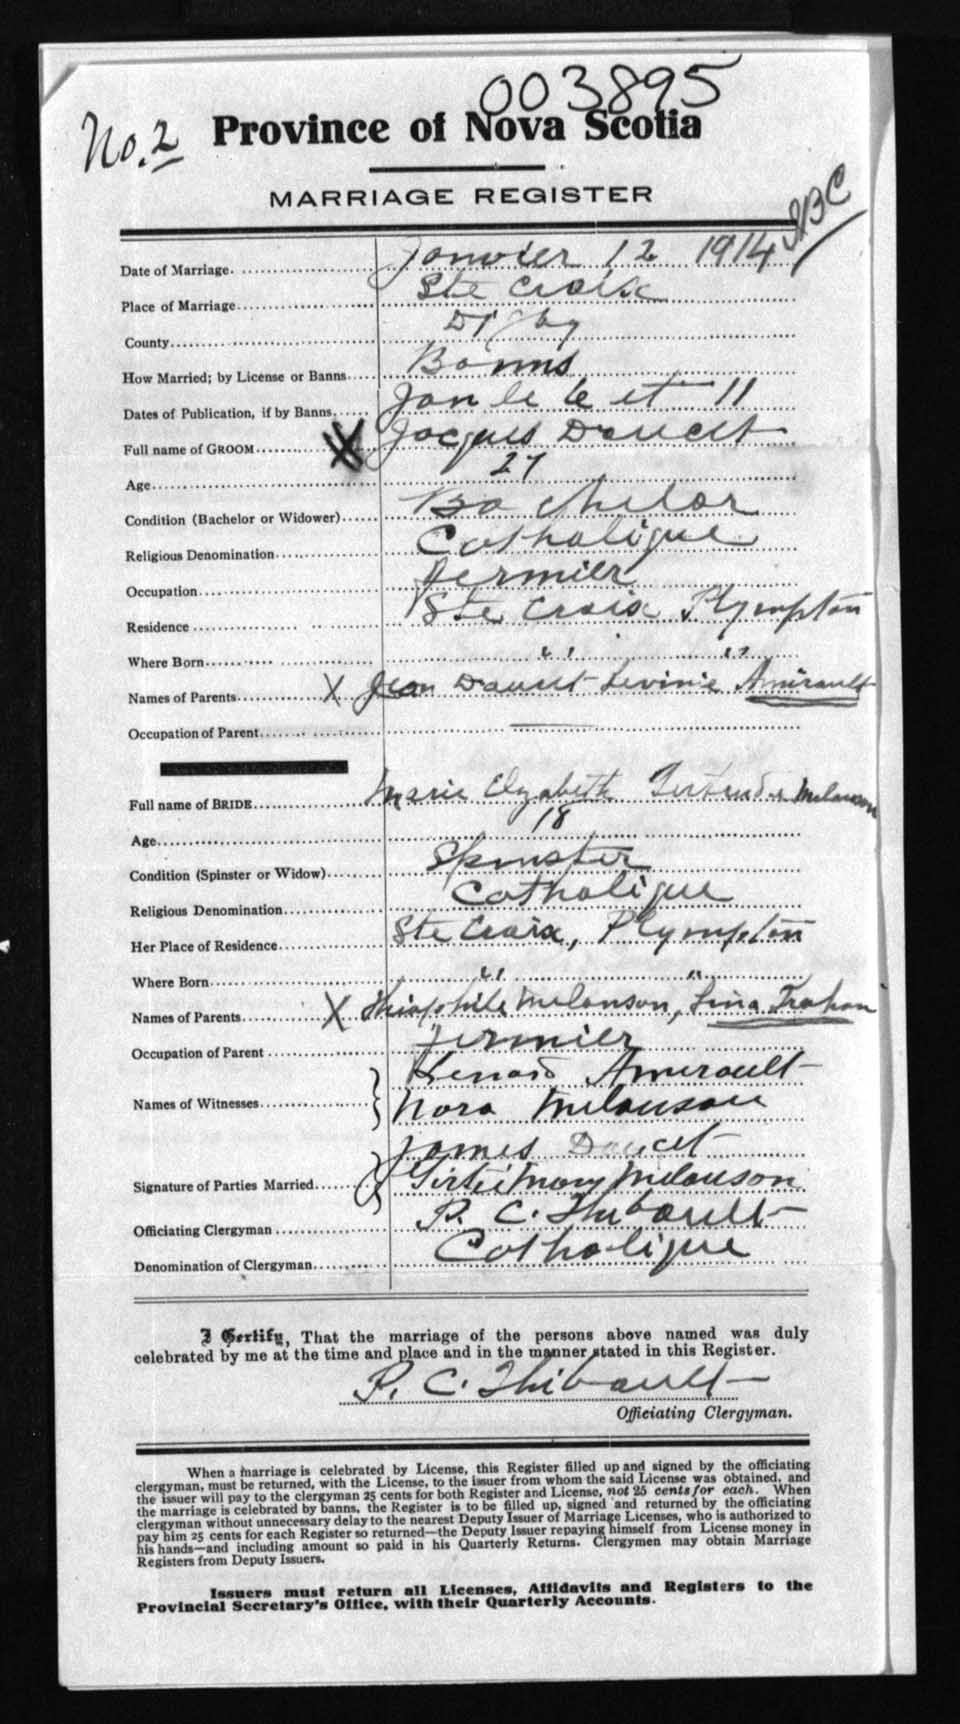 003895
No. 2 Province of Nova Scotia
MARRIAGE REGISTER
Date of Marriage Janvier 12 1914
Place of Marriage Ste Croix
County Digby
How Married; by License or Banns Banns
Dates of Publication, if by Banns Jan le 6 et 11
Full name of GROOM X Jacques Doucet
Age 27
Condition (Bachelor or Widower) Bachelor
Religious Denomination Catholique
Occupation Fermier
Residence Ste Croix Plympton
Where Born " "
Names of Parents X Jean Doucet Levinie Amirault
Occupation of Parent
Full name of BRIDE Marie Elyabeth Gertrude Melanson
Age 18
Condition (Spinster or Widow) Spinster
Religious Denomination Catholique
Her Place of Residence Ste Croix, Plympton
Where Born " "
Names of Parents X Théophile Melanson, Lina Trahan
Occupation of Parent Fermier
Amirault
Names of Witnesses Nora Melanson
James Doucet
Signature of Parties Married Mary Melanson
Officiating Clergyman P. C. Thibault
Denomination of Clergyman Catholique
I Certify, That the marriage of the persons above named was duly
celebrated by me at the time and place and in the manner stated in this Register.
P. C. Thibault
Officiating Clergyman.
When a marriage is celebrated by License, this Register filled up and signed by the officiating
clergyman, must be returned, with the License, to the issuer from whom the said License was obtained, and
the issuer will pay to the clergyman 25 cents for both Register and License, not 25 cents for each. When
the marriage is celebrated by banns, the Register is to be filled up, signed and returned by the officiating
clergyman without unnecessary delay to the nearest Deputy Issuer of Marriage Licenses, who is authorized to
pay him 25 cents for each Register so returned—the Deputy Issuer repaying himself from License money in
his hands—and including amount so paid in his Quarterly Returns. Clergymen may obtain Marriage
Registers from Deputy Issuers.
Issuers must return all Licenses, Affidavits and Registers to the
Provincial Secretary's Office, with their Quarterly Accounts.